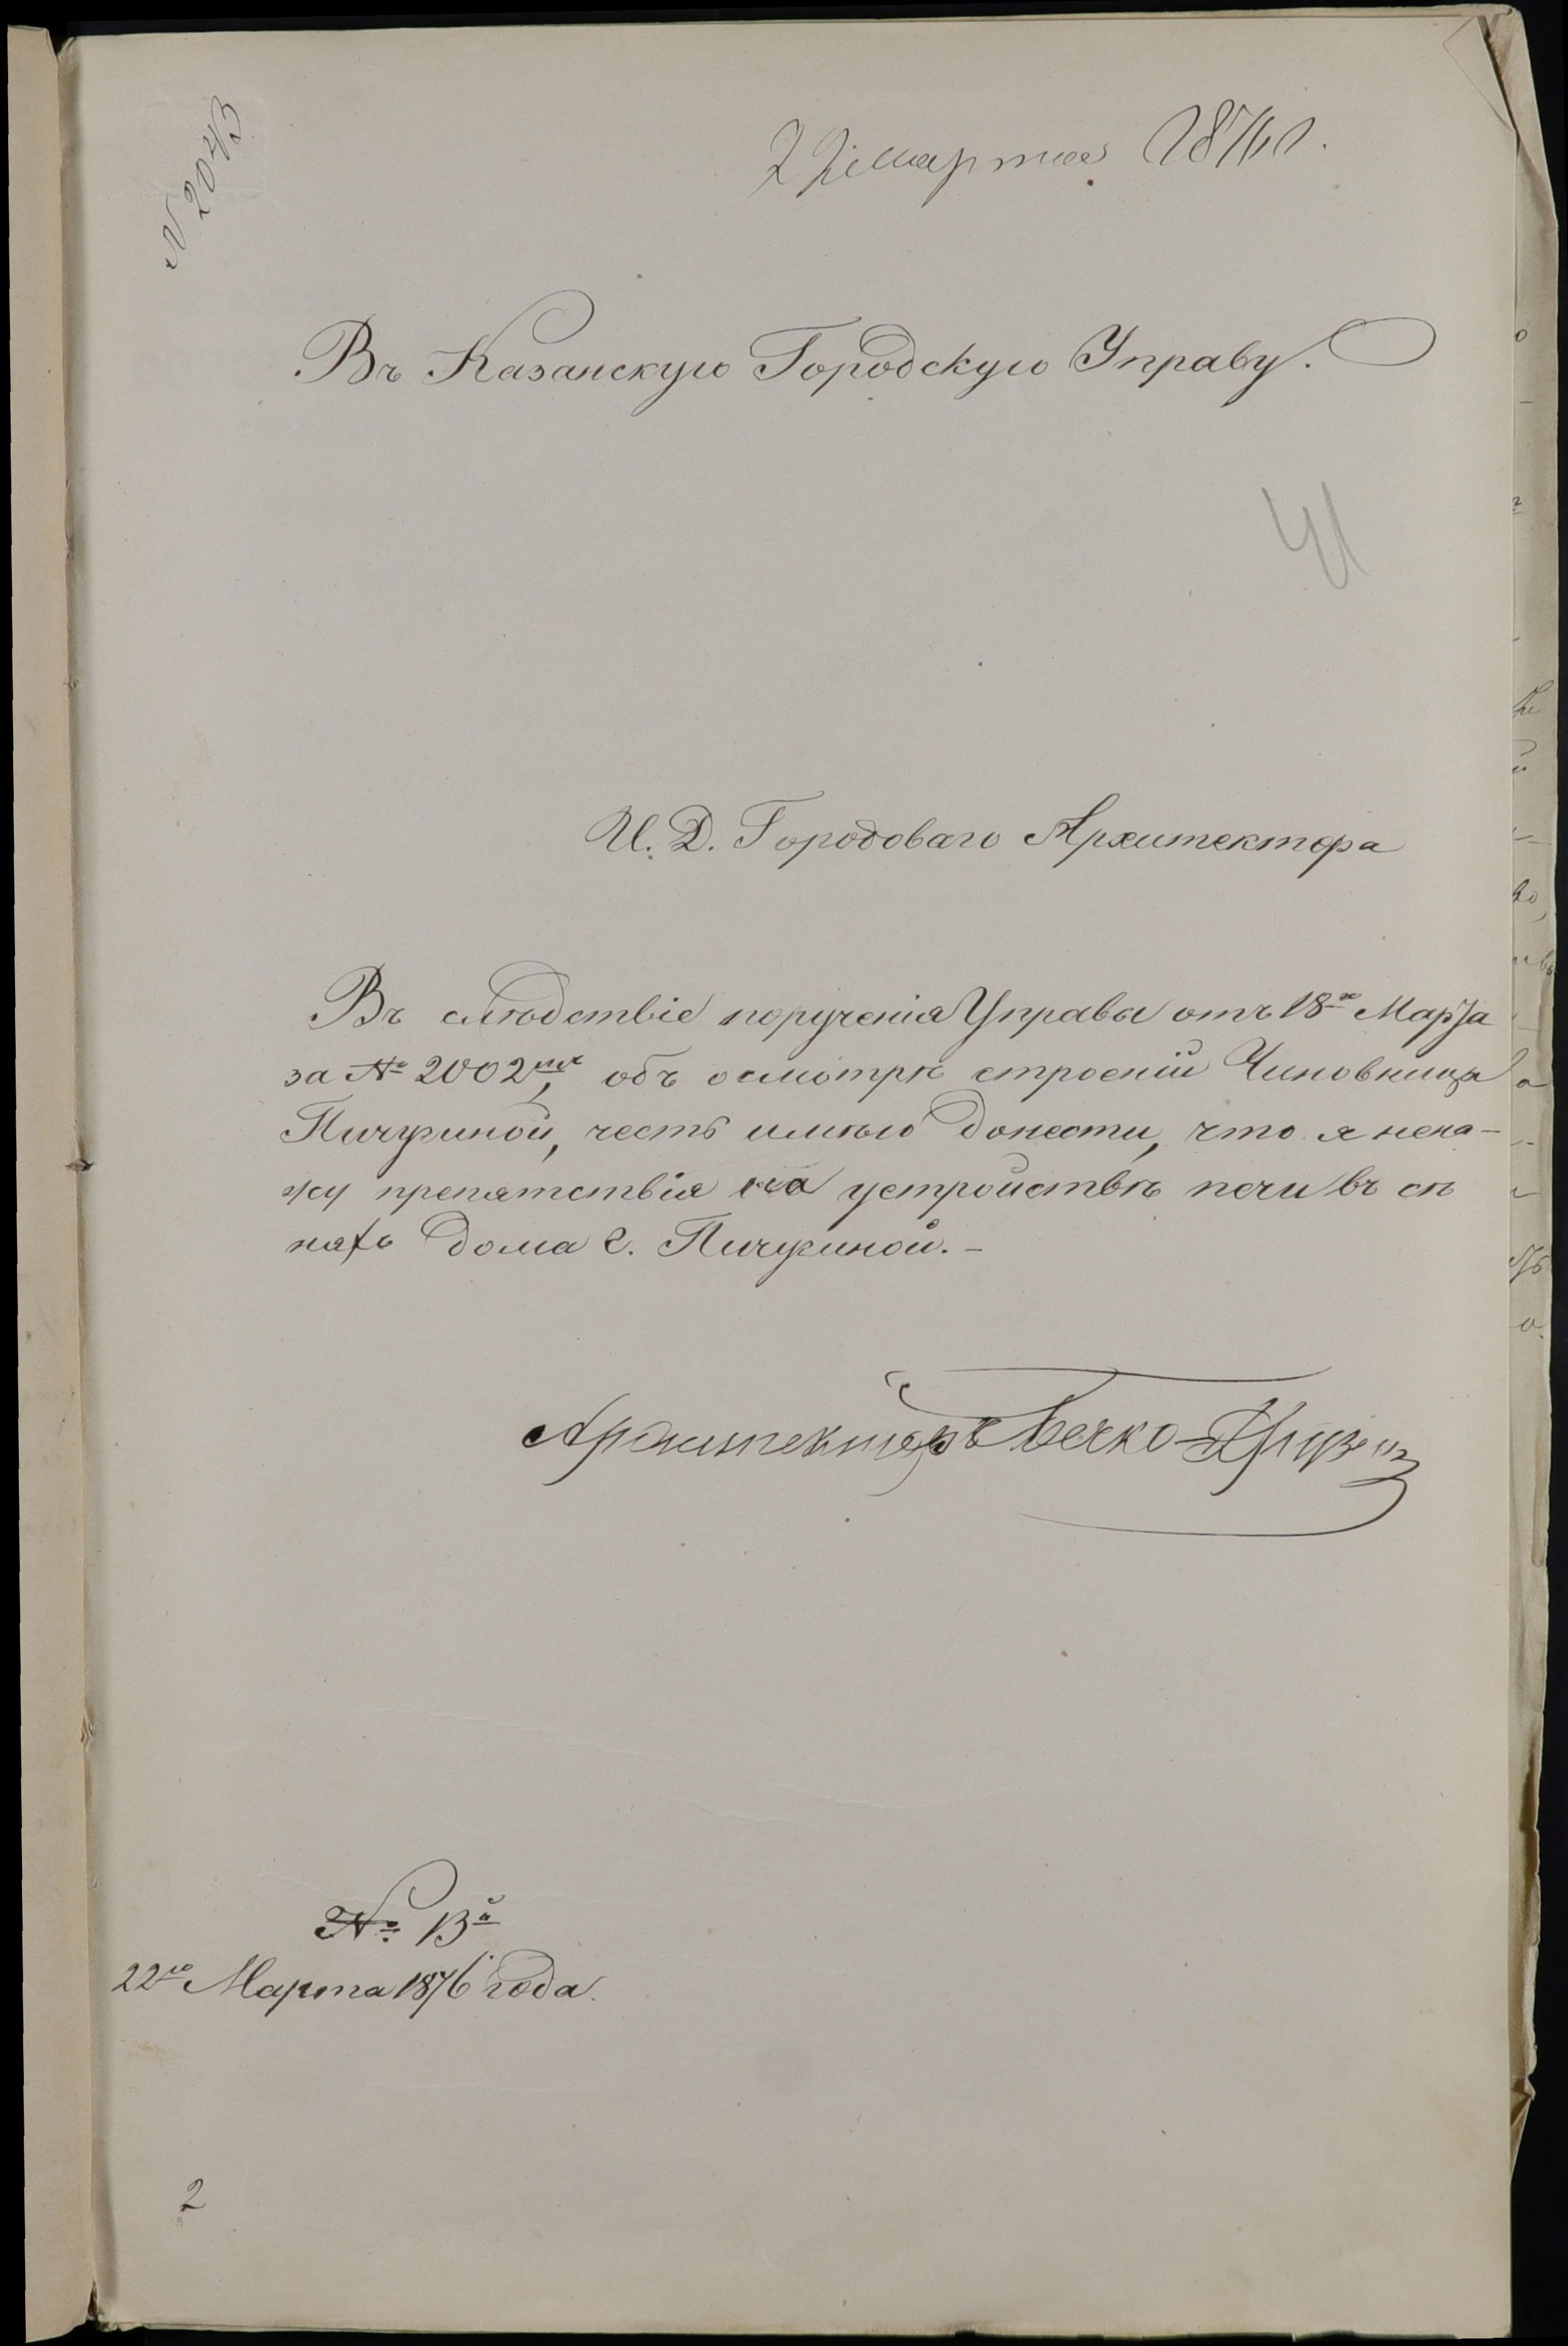 N 2043
22 марта 1876 г.
Въ Казанскую Городскую Управу.
41
И. Д. Городоваго Архитектора
Въ слѣдствіе порученія Управы отъ 18го Марта
за № 2002мъ, объ осмотрѣ строеній Чиновницы
Пичугиной, честь имѣю донести, что я нена-
жу препятствія на устройствѣ печи въ сѣ
няхъ дома г. Пичугиной. –
Архитекторъ Бечко-Друзин
№ 13й
22го Марта 1876 года.
2